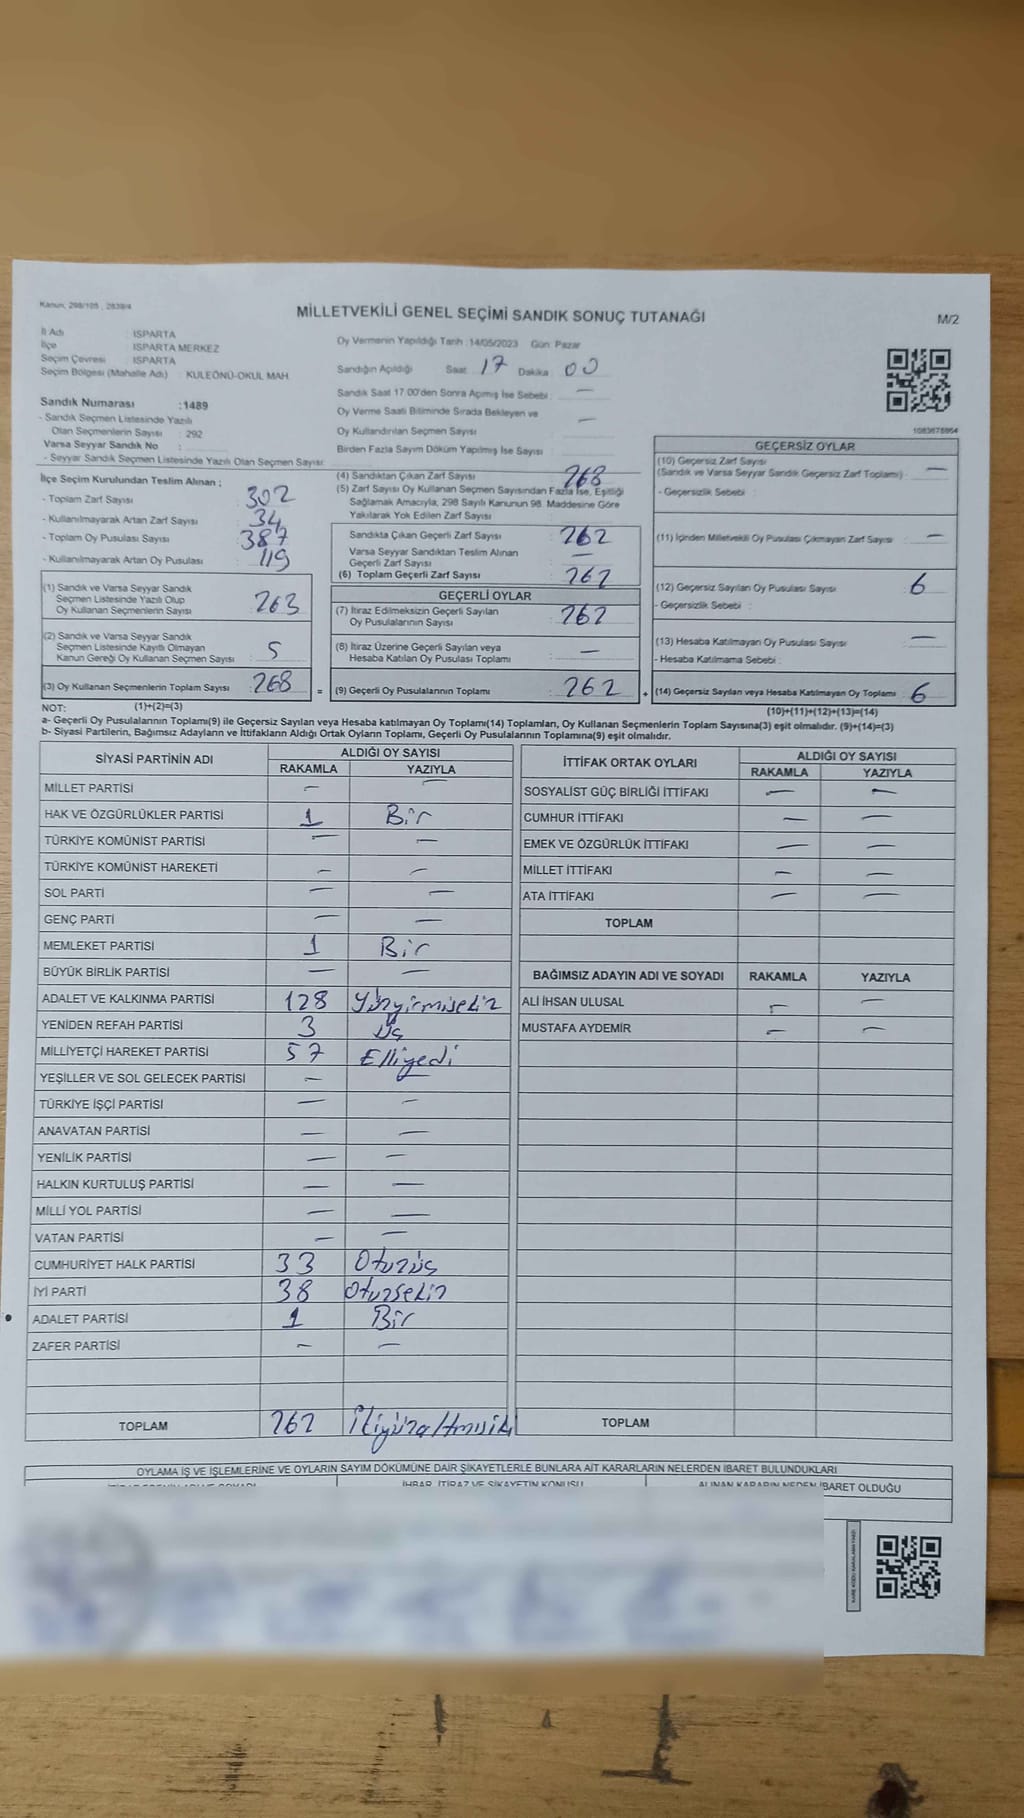 Kanun, 298/105 , 2839/4
MİLLETVEKİLİ GENEL SEÇİMİ SANDIK SONUÇ TUTANAĞI
M/2
İl Adı : ISPARTA
İlçe : ISPARTA MERKEZ
Seçim Çevresi : ISPARTA
Seçim Bölgesi (Mahalle Adı) : KULEÖNÜ-OKUL MAH.
Sandık Numarası :1489
- Sandık Seçmen Listesinde Yazılı
Olan Seçmenlerin Sayısı : 292
Varsa Seyyar Sandık No :
- Seyyar Sandık Seçmen Listesinde Yazılı Olan Seçmen Sayısı:
Oy Vermenin Yapıldığı Tarih :14/05/2023 Gün: Pazar
Sandığın Açıldığı Saat : 17 Dakika : 00
Sandık Saat 17.00'den Sonra Açımış İse Sebebi : —
Oy Verme Saati Bitiminde Sırada Bekleyen ve
Oy Kullandırılan Seçmen Sayısı : —
Birden Fazla Sayım Döküm Yapılmış İse Sayısı :
1083678864
İlçe Seçim Kurulundan Teslim Alınan ;
- Toplam Zarf Sayısı : 302
- Kullanılmayarak Artan Zarf Sayısı : 34
- Toplam Oy Pusulası Sayısı : 387
- Kullanılmayarak Artan Oy Pusulası : 119
(1) Sandık ve Varsa Seyyar Sandık
Seçmen Listesinde Yazılı Olup
Oy Kullanan Seçmenlerin Sayısı : 263
(2) Sandık ve Varsa Seyyar Sandık
Seçmen Listesinde Kayıtlı Olmayan
Kanun Gereği Oy Kullanan Seçmen Sayısı : 5
(3) Oy Kullanan Seçmenlerin Toplam Sayısı : 268 =
(4) Sandıktan Çıkan Zarf Sayısı : 268
(5) Zarf Sayısı Oy Kullanan Seçmen Sayısından Fazla İse, Eşitliği
Sağlamak Amacıyla, 298 Sayılı Kanunun 98. Maddesine Göre
Yakılarak Yok Edilen Zarf Sayısı :
Sandıkta Çıkan Geçerli Zarf Sayısı : 262
Varsa Seyyar Sandıktan Teslim Alınan
Geçerli Zarf Sayısı : —
(6) Toplam Geçerli Zarf Sayısı : 262
GEÇERLİ OYLAR
(7) İtiraz Edilmeksizin Geçerli Sayılan
Oy Pusulalarının Sayısı : 262
(8) İtiraz Üzerine Geçerli Sayılan veya
Hesaba Katılan Oy Pusulası Toplamı : —
(9) Geçerli Oy Pusulalarının Toplamı : 262 +
GEÇERSİZ OYLAR
(10) Geçersiz Zarf Sayısı
(Sandık ve Varsa Seyyar Sandık Geçersiz Zarf Toplamı) : —
- Geçersizlik Sebebi :
(11) İçinden Milletvekili Oy Pusulası Çıkmayan Zarf Sayısı : —
(12) Geçersiz Sayılan Oy Pusulası Sayısı : 6
- Geçersizlik Sebebi :
(13) Hesaba Katılmayan Oy Pusulası Sayısı : —
- Hesaba Katılmama Sebebi :
(14) Geçersiz Sayılan veya Hesaba Katılmayan Oy Toplamı : 6
NOT: (1)+(2)=(3)
(10)+(11)+(12)+(13)=(14)
a- Geçerli Oy Pusulalarının Toplamı(9) ile Geçersiz Sayılan veya Hesaba katılmayan Oy Toplamı(14) Toplamları, Oy Kullanan Seçmenlerin Toplam Sayısına(3) eşit olmalıdır. (9)+(14)=(3)
b- Siyasi Partilerin, Bağımsız Adayların ve İttifakların Aldığı Ortak Oyların Toplamı, Geçerli Oy Pusulalarının Toplamına(9) eşit olmalıdır.
SİYASİ PARTİNİN ADI ALDIĞI OY SAYISI
RAKAMLA YAZIYLA
MİLLET PARTİSİ — —
HAK VE ÖZGÜRLÜKLER PARTİSİ 1 Bir
TÜRKİYE KOMÜNİST PARTİSİ — —
TÜRKİYE KOMÜNİST HAREKETİ — —
SOL PARTİ — —
GENÇ PARTİ — —
MEMLEKET PARTİSİ 1 Bir
BÜYÜK BİRLİK PARTİSİ — —
ADALET VE KALKINMA PARTİSİ 128 Yüzyirmisekiz
YENİDEN REFAH PARTİSİ 3 Üç
MİLLİYETÇİ HAREKET PARTİSİ 57 Elliyedi
YEŞİLLER VE SOL GELECEK PARTİSİ — —
TÜRKİYE İŞÇİ PARTİSİ — —
ANAVATAN PARTİSİ — —
YENİLİK PARTİSİ — —
HALKIN KURTULUŞ PARTİSİ — —
MİLLİ YOL PARTİSİ — —
VATAN PARTİSİ — —
CUMHURİYET HALK PARTİSİ 33 Otuzüç
İYİ PARTİ 38 Otuzsekiz
ADALET PARTİSİ 1 Bir
ZAFER PARTİSİ — —
TOPLAM 262 İkiyüzaltmışiki
İTTİFAK ORTAK OYLARI ALDIĞI OY SAYISI
RAKAMLA YAZIYLA
SOSYALİST GÜÇ BİRLİĞİ İTTİFAKI — —
CUMHUR İTTİFAKI — —
EMEK VE ÖZGÜRLÜK İTTİFAKI — —
MİLLET İTTİFAKI — —
ATA İTTİFAKI — —
TOPLAM
BAĞIMSIZ ADAYIN ADI VE SOYADI RAKAMLA YAZIYLA
ALİ İHSAN ULUSAL — —
MUSTAFA AYDEMİR — —
TOPLAM
OYLAMA İŞ VE İŞLEMLERİNE VE OYLARIN SAYIM DÖKÜMÜNE DAİR ŞİKAYETLERLE BUNLARA AİT KARARLARIN NELERDEN İBARET BULUNDUKLARI
İHBAR, İTİRAZ VE ŞİKAYETİN KONUSU ALINAN KARARIN NEDEN İBARET OLDUĞU